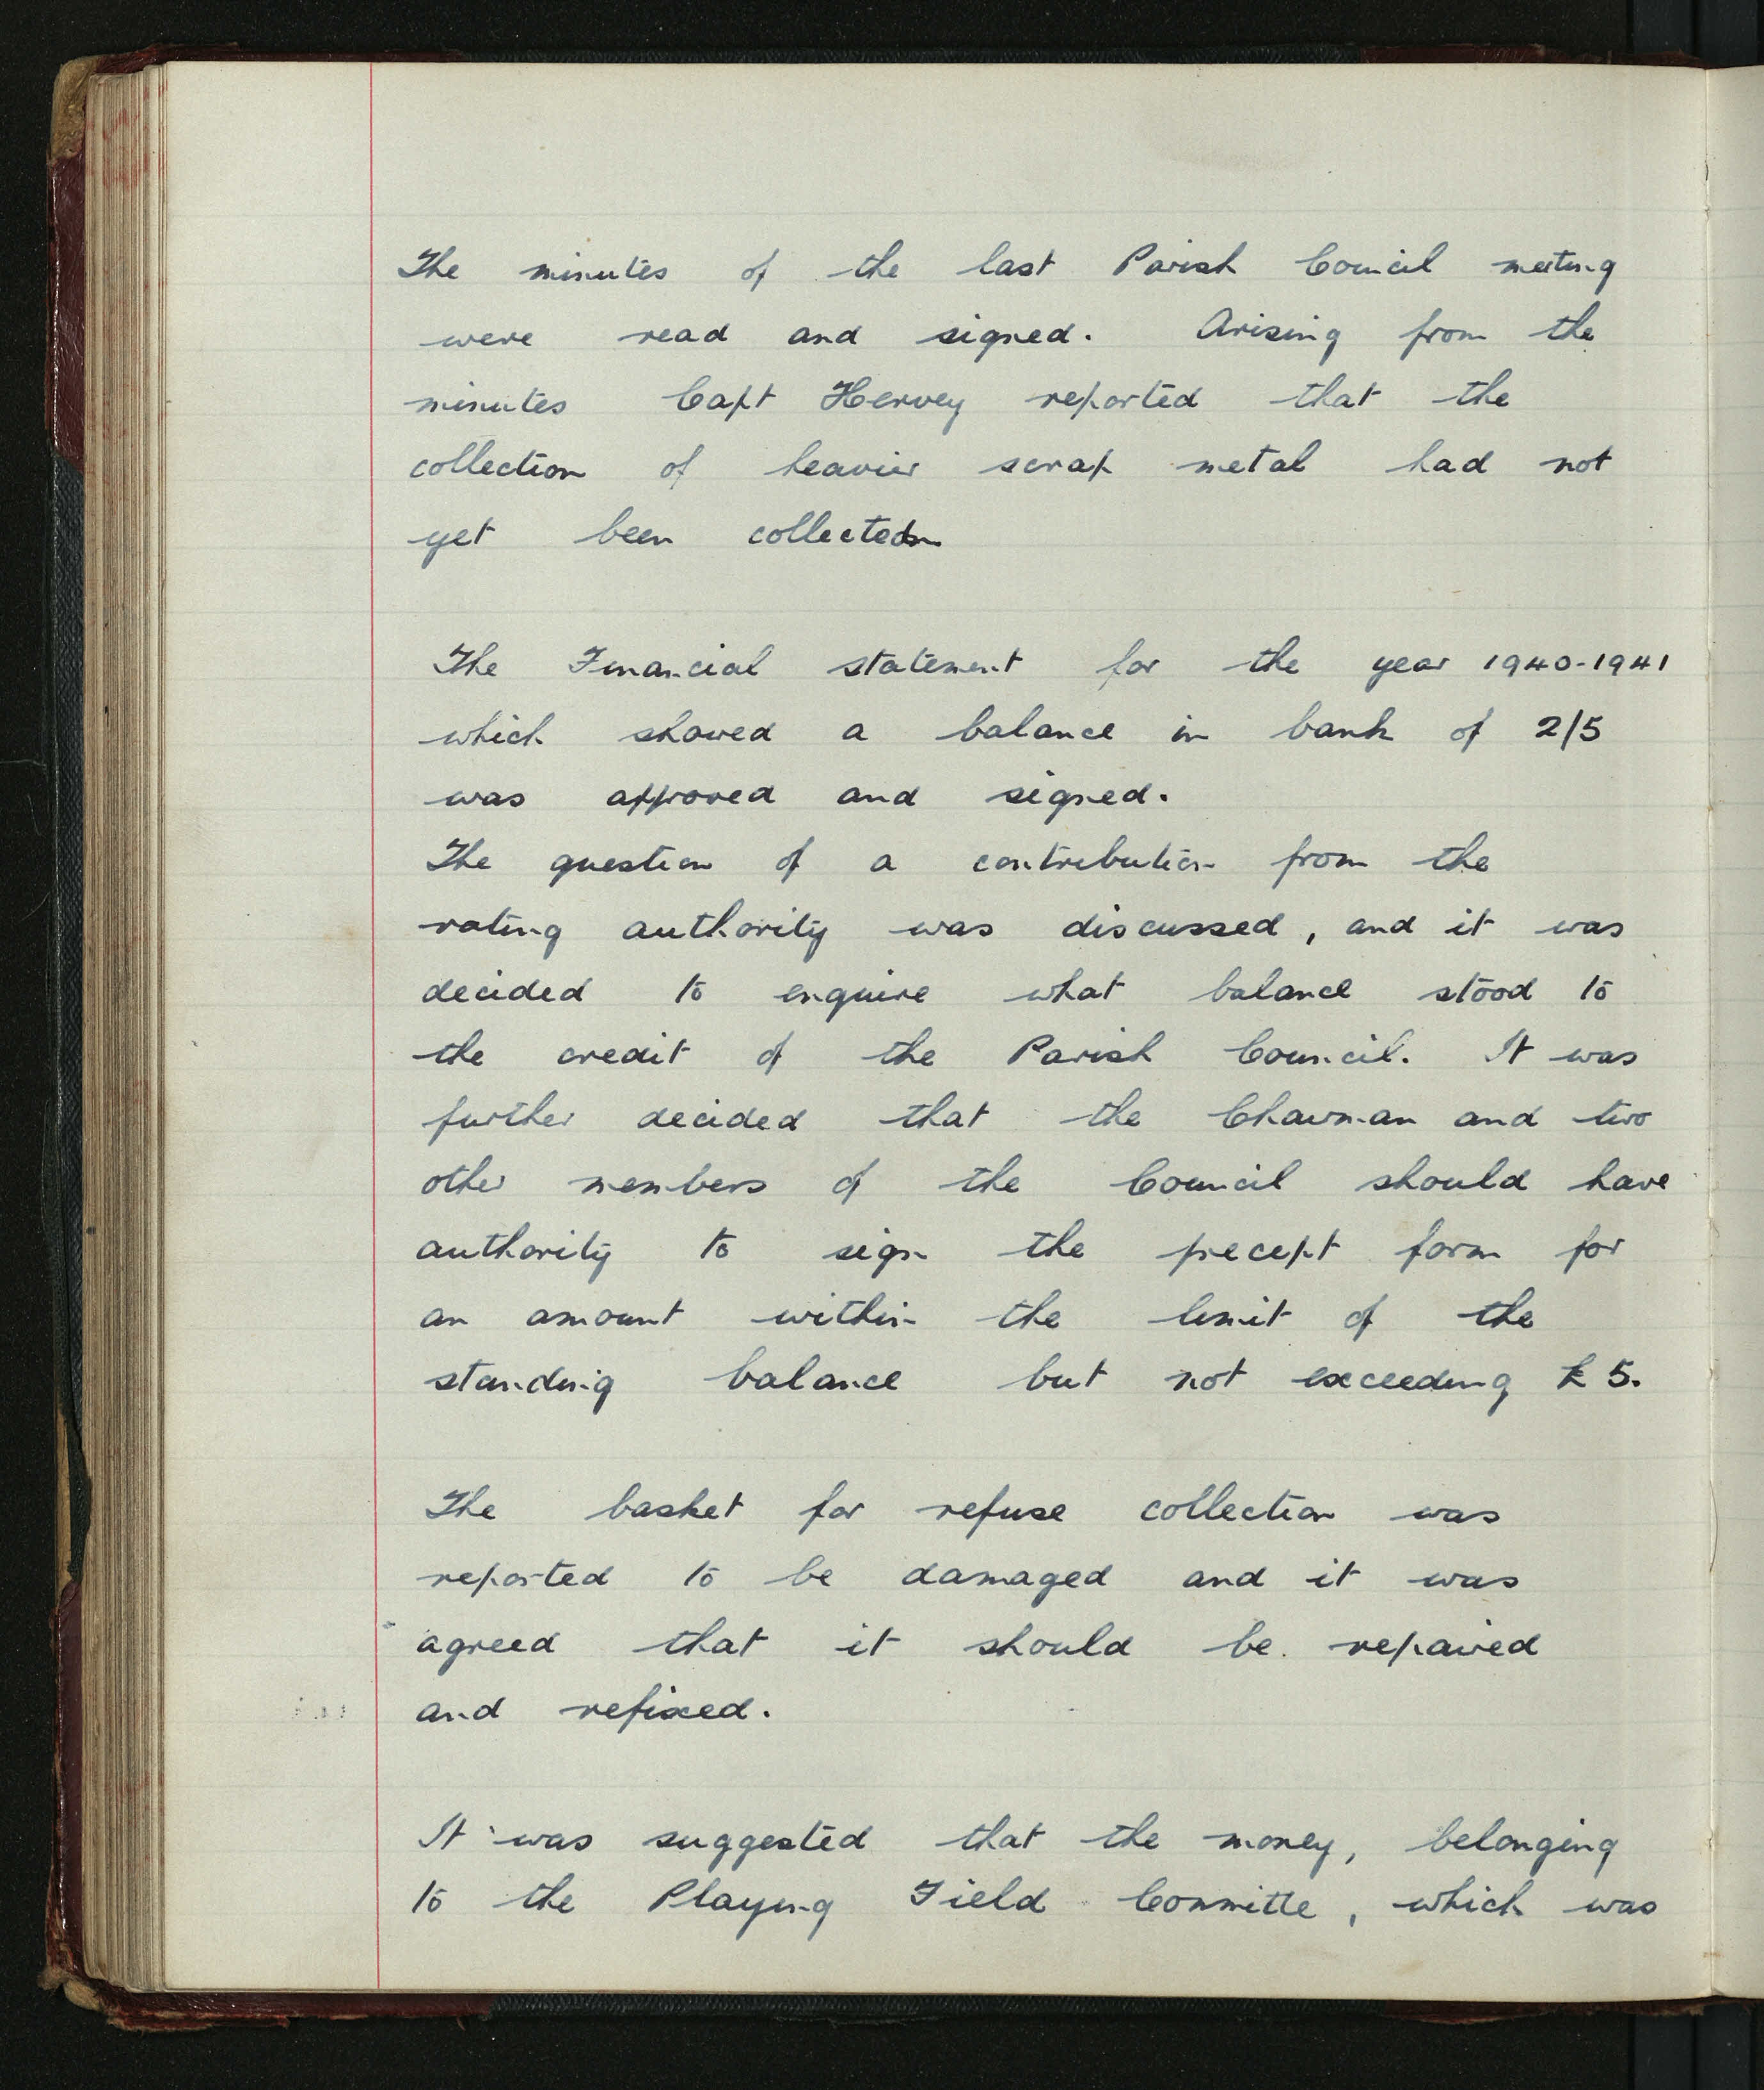 The minutes of the last Parish Council meeting
were read and signed. Arising from the
minutes Capt Hervey reported that the
collection of heavier scrap metal had not
yet been collected
The Financial statement for the year 1940-1941
which showed a balance in bank of 2/5
was approved and signed.
The question of a contribution from the
rating authority was discussed, and it was
decided to enquire what balance stood to
the credit of the Parish Council. It was
further decided that the Chairman and two
other members of the Council should have
authority to sign the precept form for
an amount within the limit of the
standing balance but not exceeding £5.
The basket for refuse collection was
reported to be damaged and it was
agreed that it should be repaired
and refixed.
It was suggested that the money, belonging
to the Playing Field Committe, which was